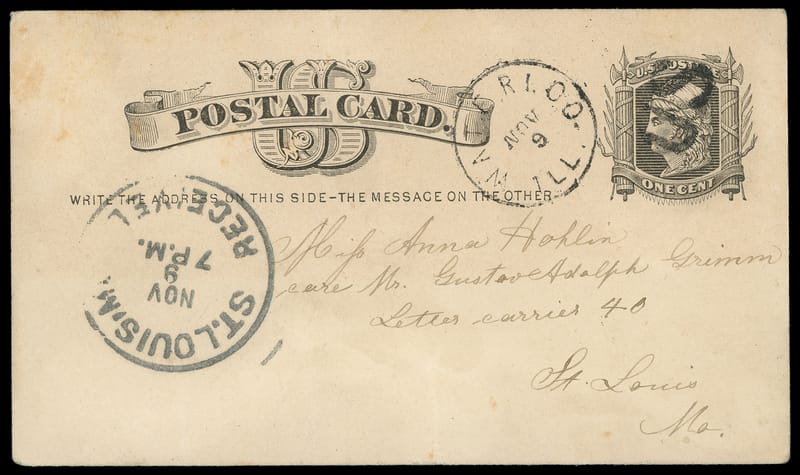 US
POSTAL CARD.
U.S. POSTAGE
ONE CENT
WATERLOO
NOV
9
ILL.
WRITE THE ADDRESS ON THIS SIDE-THE MESSAGE ON THE OTHER
RECEIVED
7 P.M.
9
NOV
ST. LOUIS, M
Miss Anna Hohlin
care Mr. Gustav Adolph Grimm
Letter carrier 40
St. Louis
Mo.